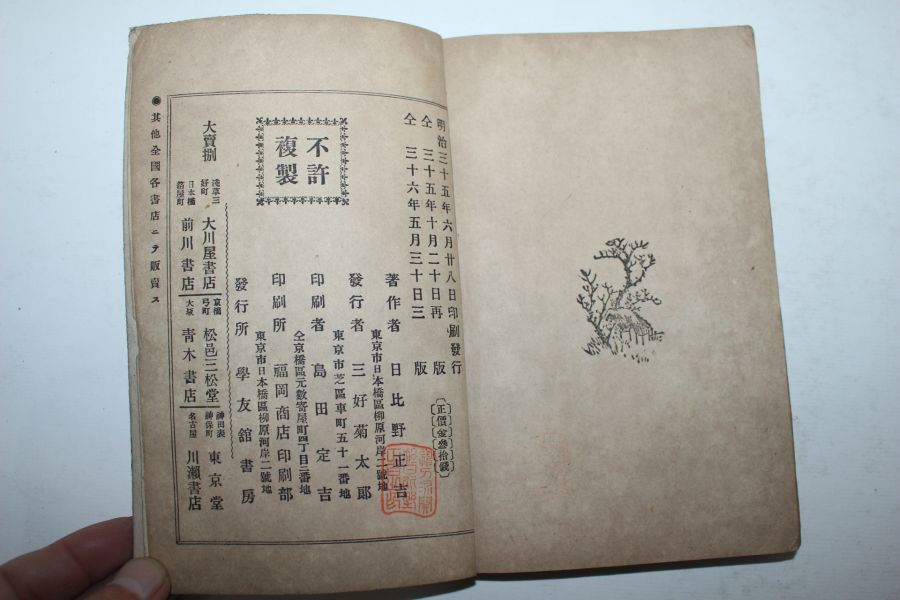 明治三十五年六月廿八日印刷發行
仝 三十五年十月二十日再版
仝 三十六年五月三十日三版
正價金參拾錢
著作者 日比野正吉
東京市日本橋區柳原河岸二號地
發行者 三好菊太郎
東京市芝區車町五十一番地
印刷者 島田定吉
仝京橋區元數寄屋町四丁目三番地
印刷所 福岡商店印刷部
東京市日本橋區柳原河岸二號地
發行所 學友舘書房
不許
複製
大賣捌
淺草三好町 大川屋書店
日本橋箔屋町 前川書店
京橋弓町 松邑三松堂
大坂 青木書店
神田表神保町 東京堂
名古屋 川瀬書店
◉其他全國各書店ニテ販賣ス